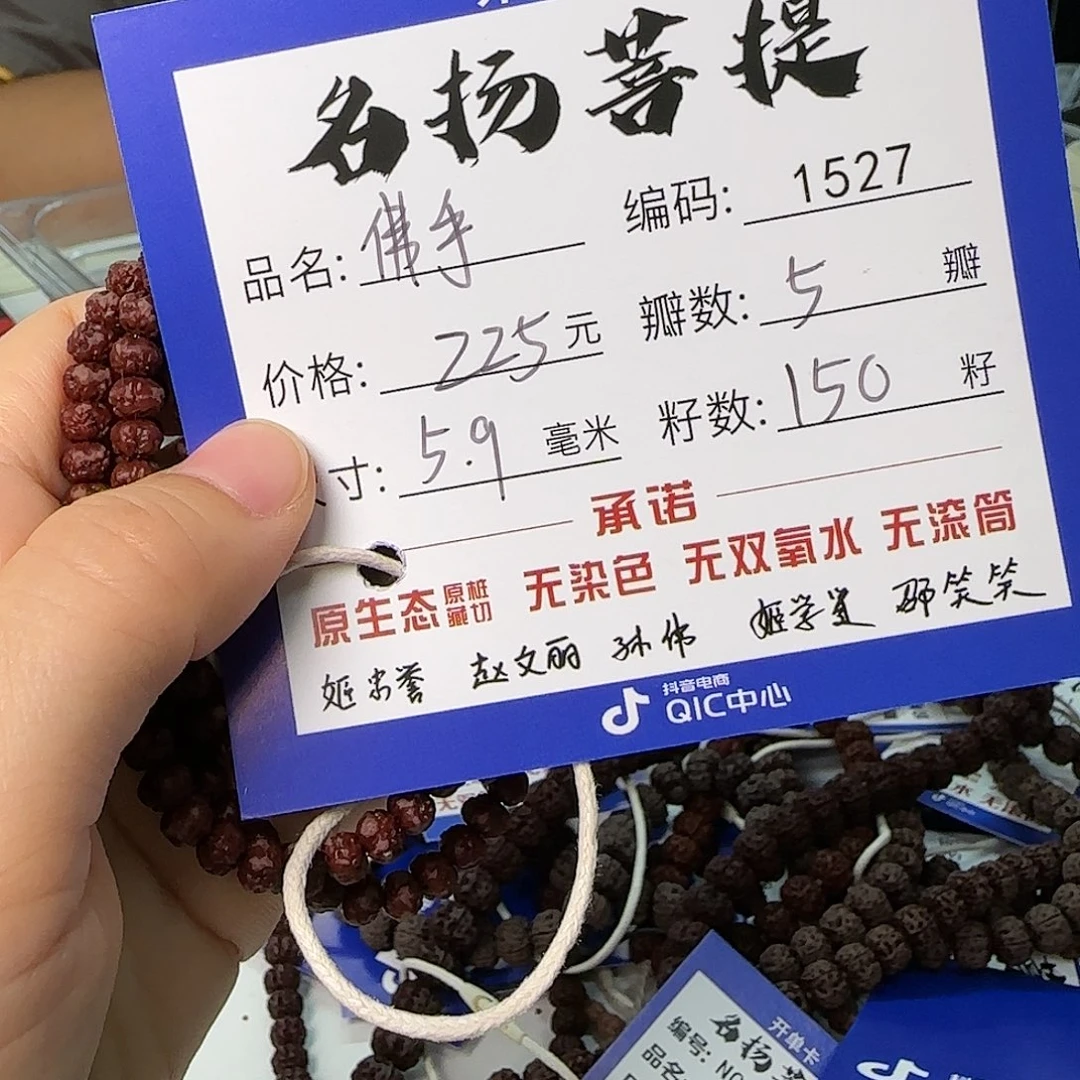 名扬菩提
品名: 佛手 编码: 1527
价格: 225 元 瓣数: 5 瓣
寸: 5.9 毫米 籽数: 150 籽
承诺
原生态 原桩藏切 无染色 无双氧水 无滚筒
姬忠誉 赵文丽 孙伟 姬学贤 邵笑笑
抖音电商
QIC中心
开单卡
名扬
编号: NO
品名